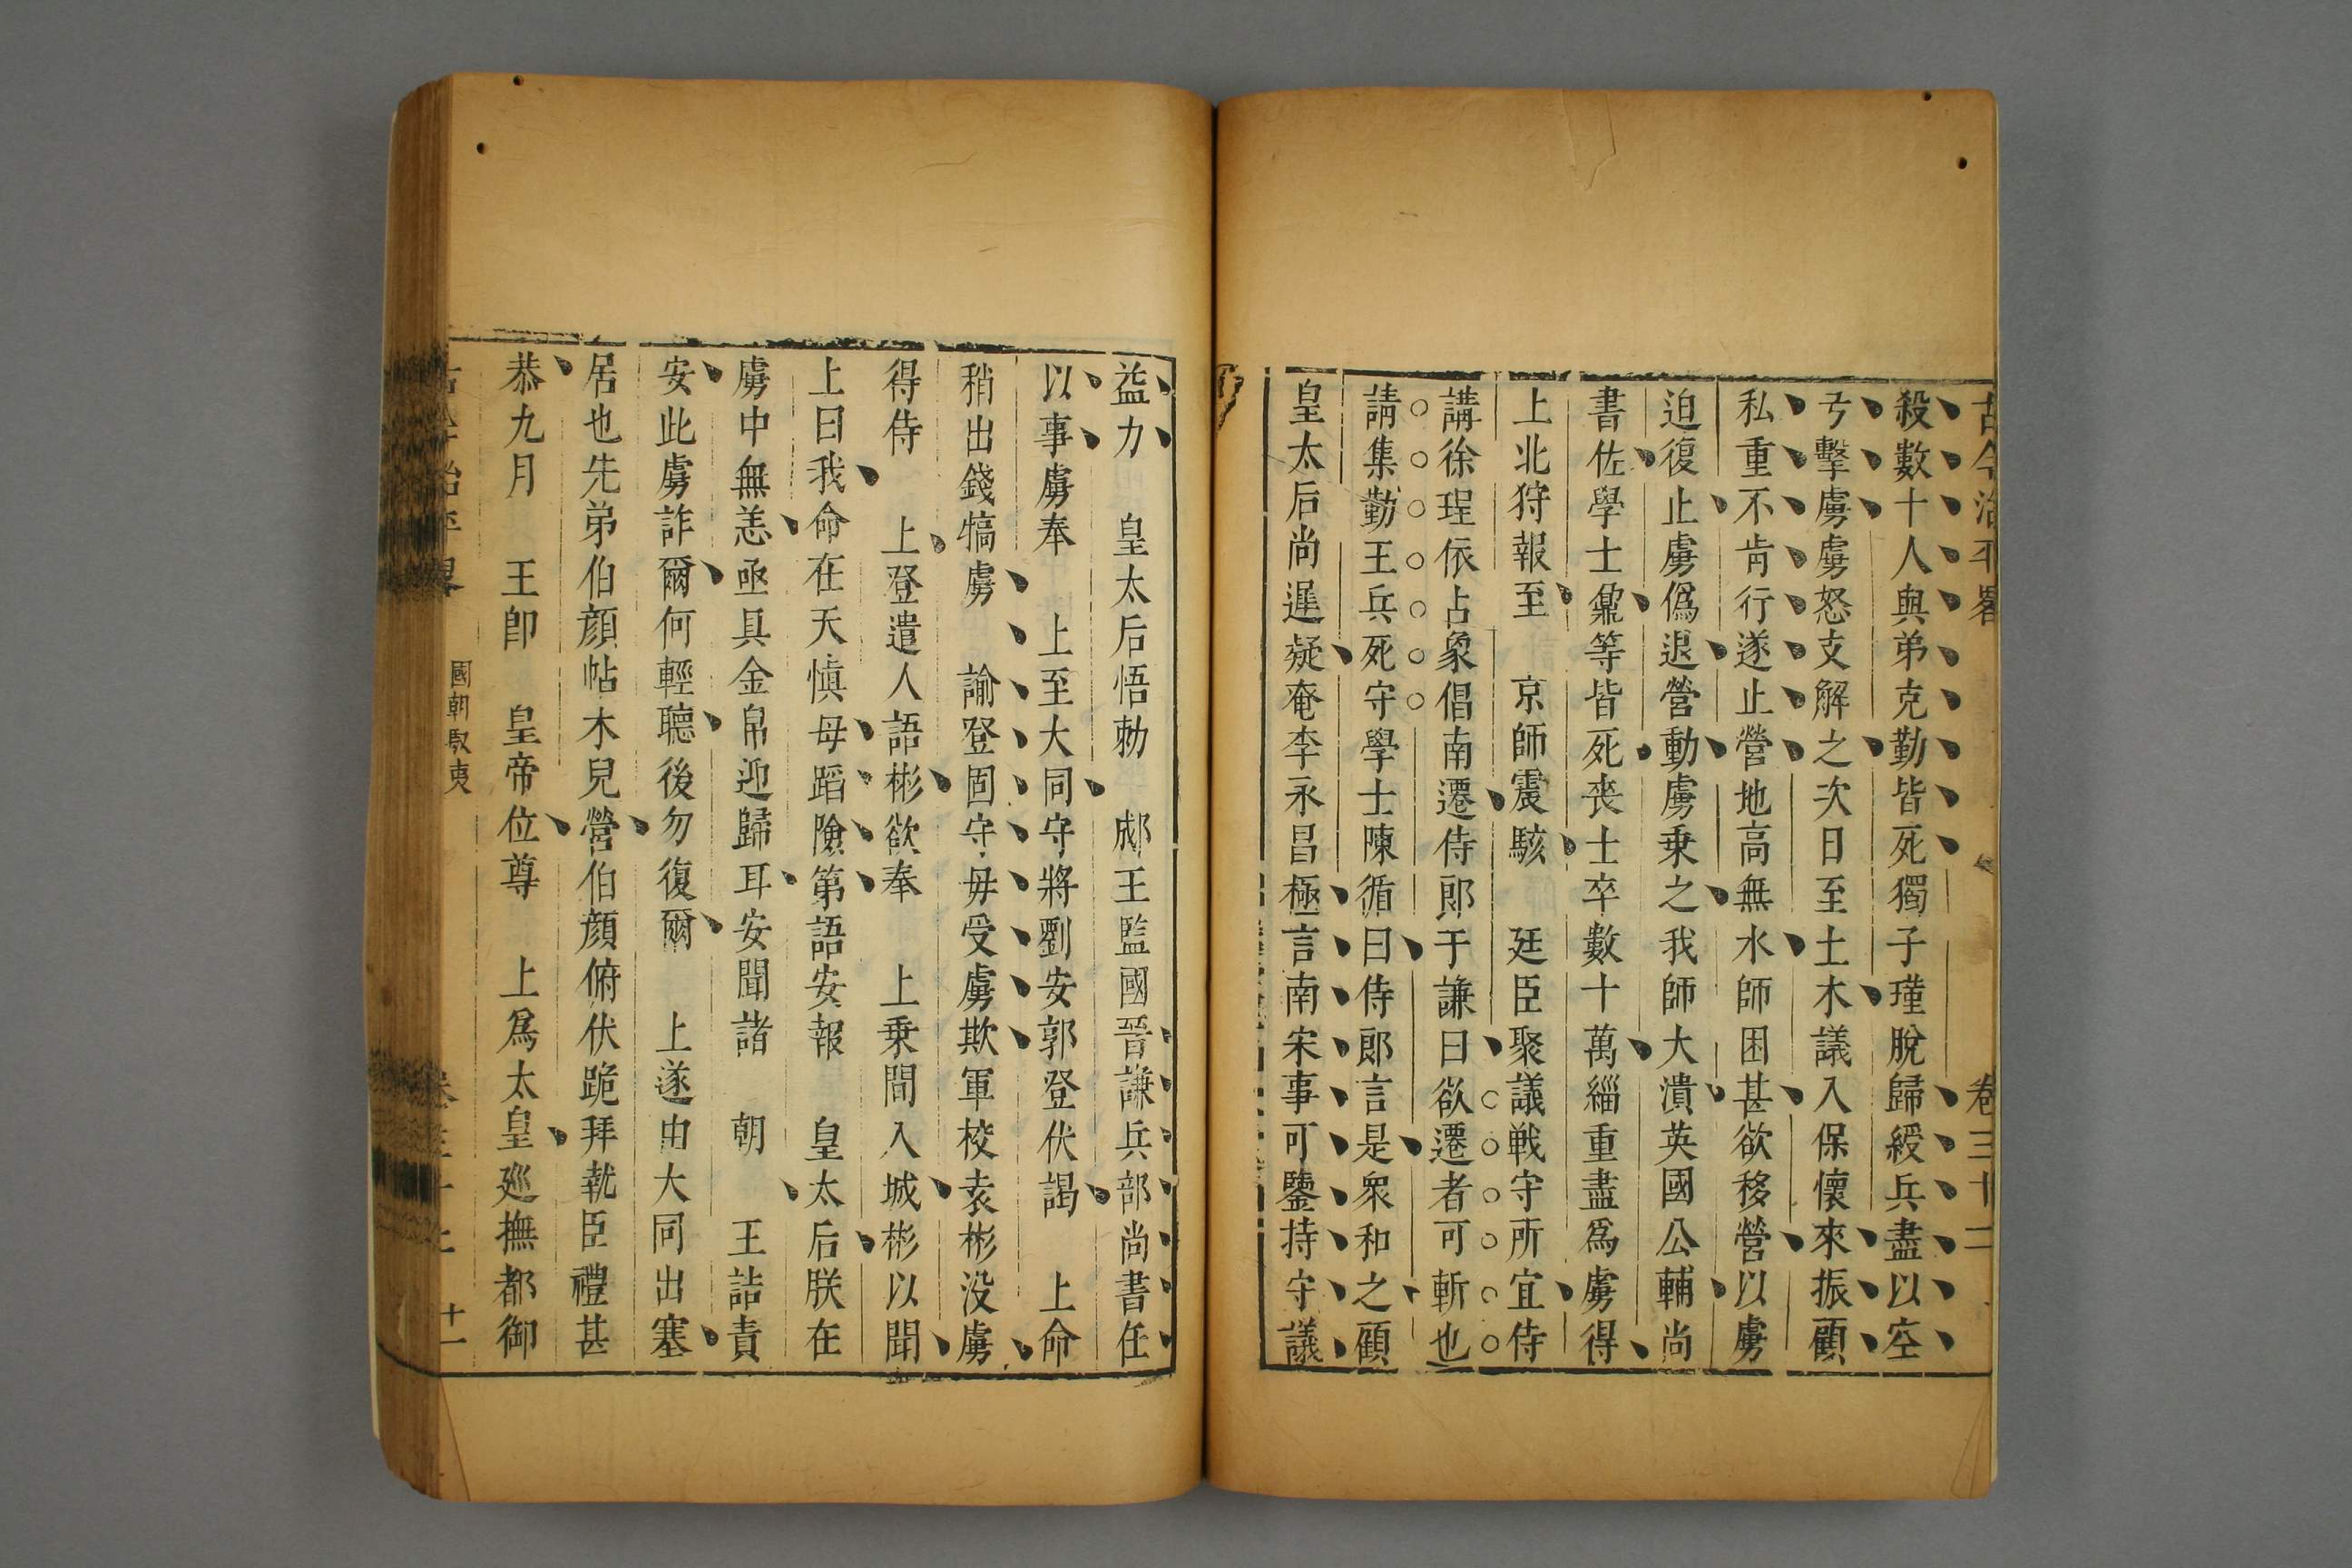 古今治平畧 卷三十二
殺數十人與弟克勤皆死獨子瑾脫歸綬兵盡以空
弮擊虜虜怒支解之次日至土木議入保懷來振顧
私重不肯行遂止營地高無水師困甚欲移營以虜
迫復止虜僞退營動虜乗之我師大潰英國公輔尚
書佐學士鼐等皆死喪士卒數十萬緇重盡爲虜得
上北狩報至 京師震駭 廷臣聚議戰守所宜侍
講徐珵依占象倡南遷侍郎于謙曰欲遷者可斬也
請集勤王兵死守學士陳循曰侍郎言是衆和之顧
皇太后尚遲疑奄李永昌極言南宋事可鑒持守議
益力 皇太后悟勅 郕王監國晉謙兵部尚書任
以事虜奉 上至大同守將劉安郭登伏謁 上命
稍出錢犒虜 諭登固守毋受虜欺軍校袁彬没虜
得侍 上登遣人語彬欲奉 上乗間入城彬以聞
上曰我命在天慎毋蹈險第語安報 皇太后朕在
虜中無恙亟具金帛迎歸耳安聞諸 朝 王詰責
安此虜詐爾何輕聽後勿復爾 上遂由大同出塞
居也先弟伯顔帖木兒營伯顔俯伏跪拜執臣禮甚
恭九月 王卽 皇帝位尊 上爲太皇廵撫都御
國朝馭夷 十一